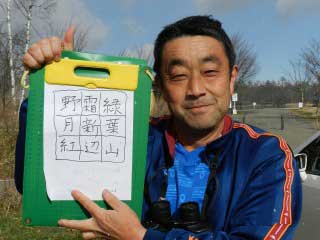 野霜緑
月新葉
紅辺山